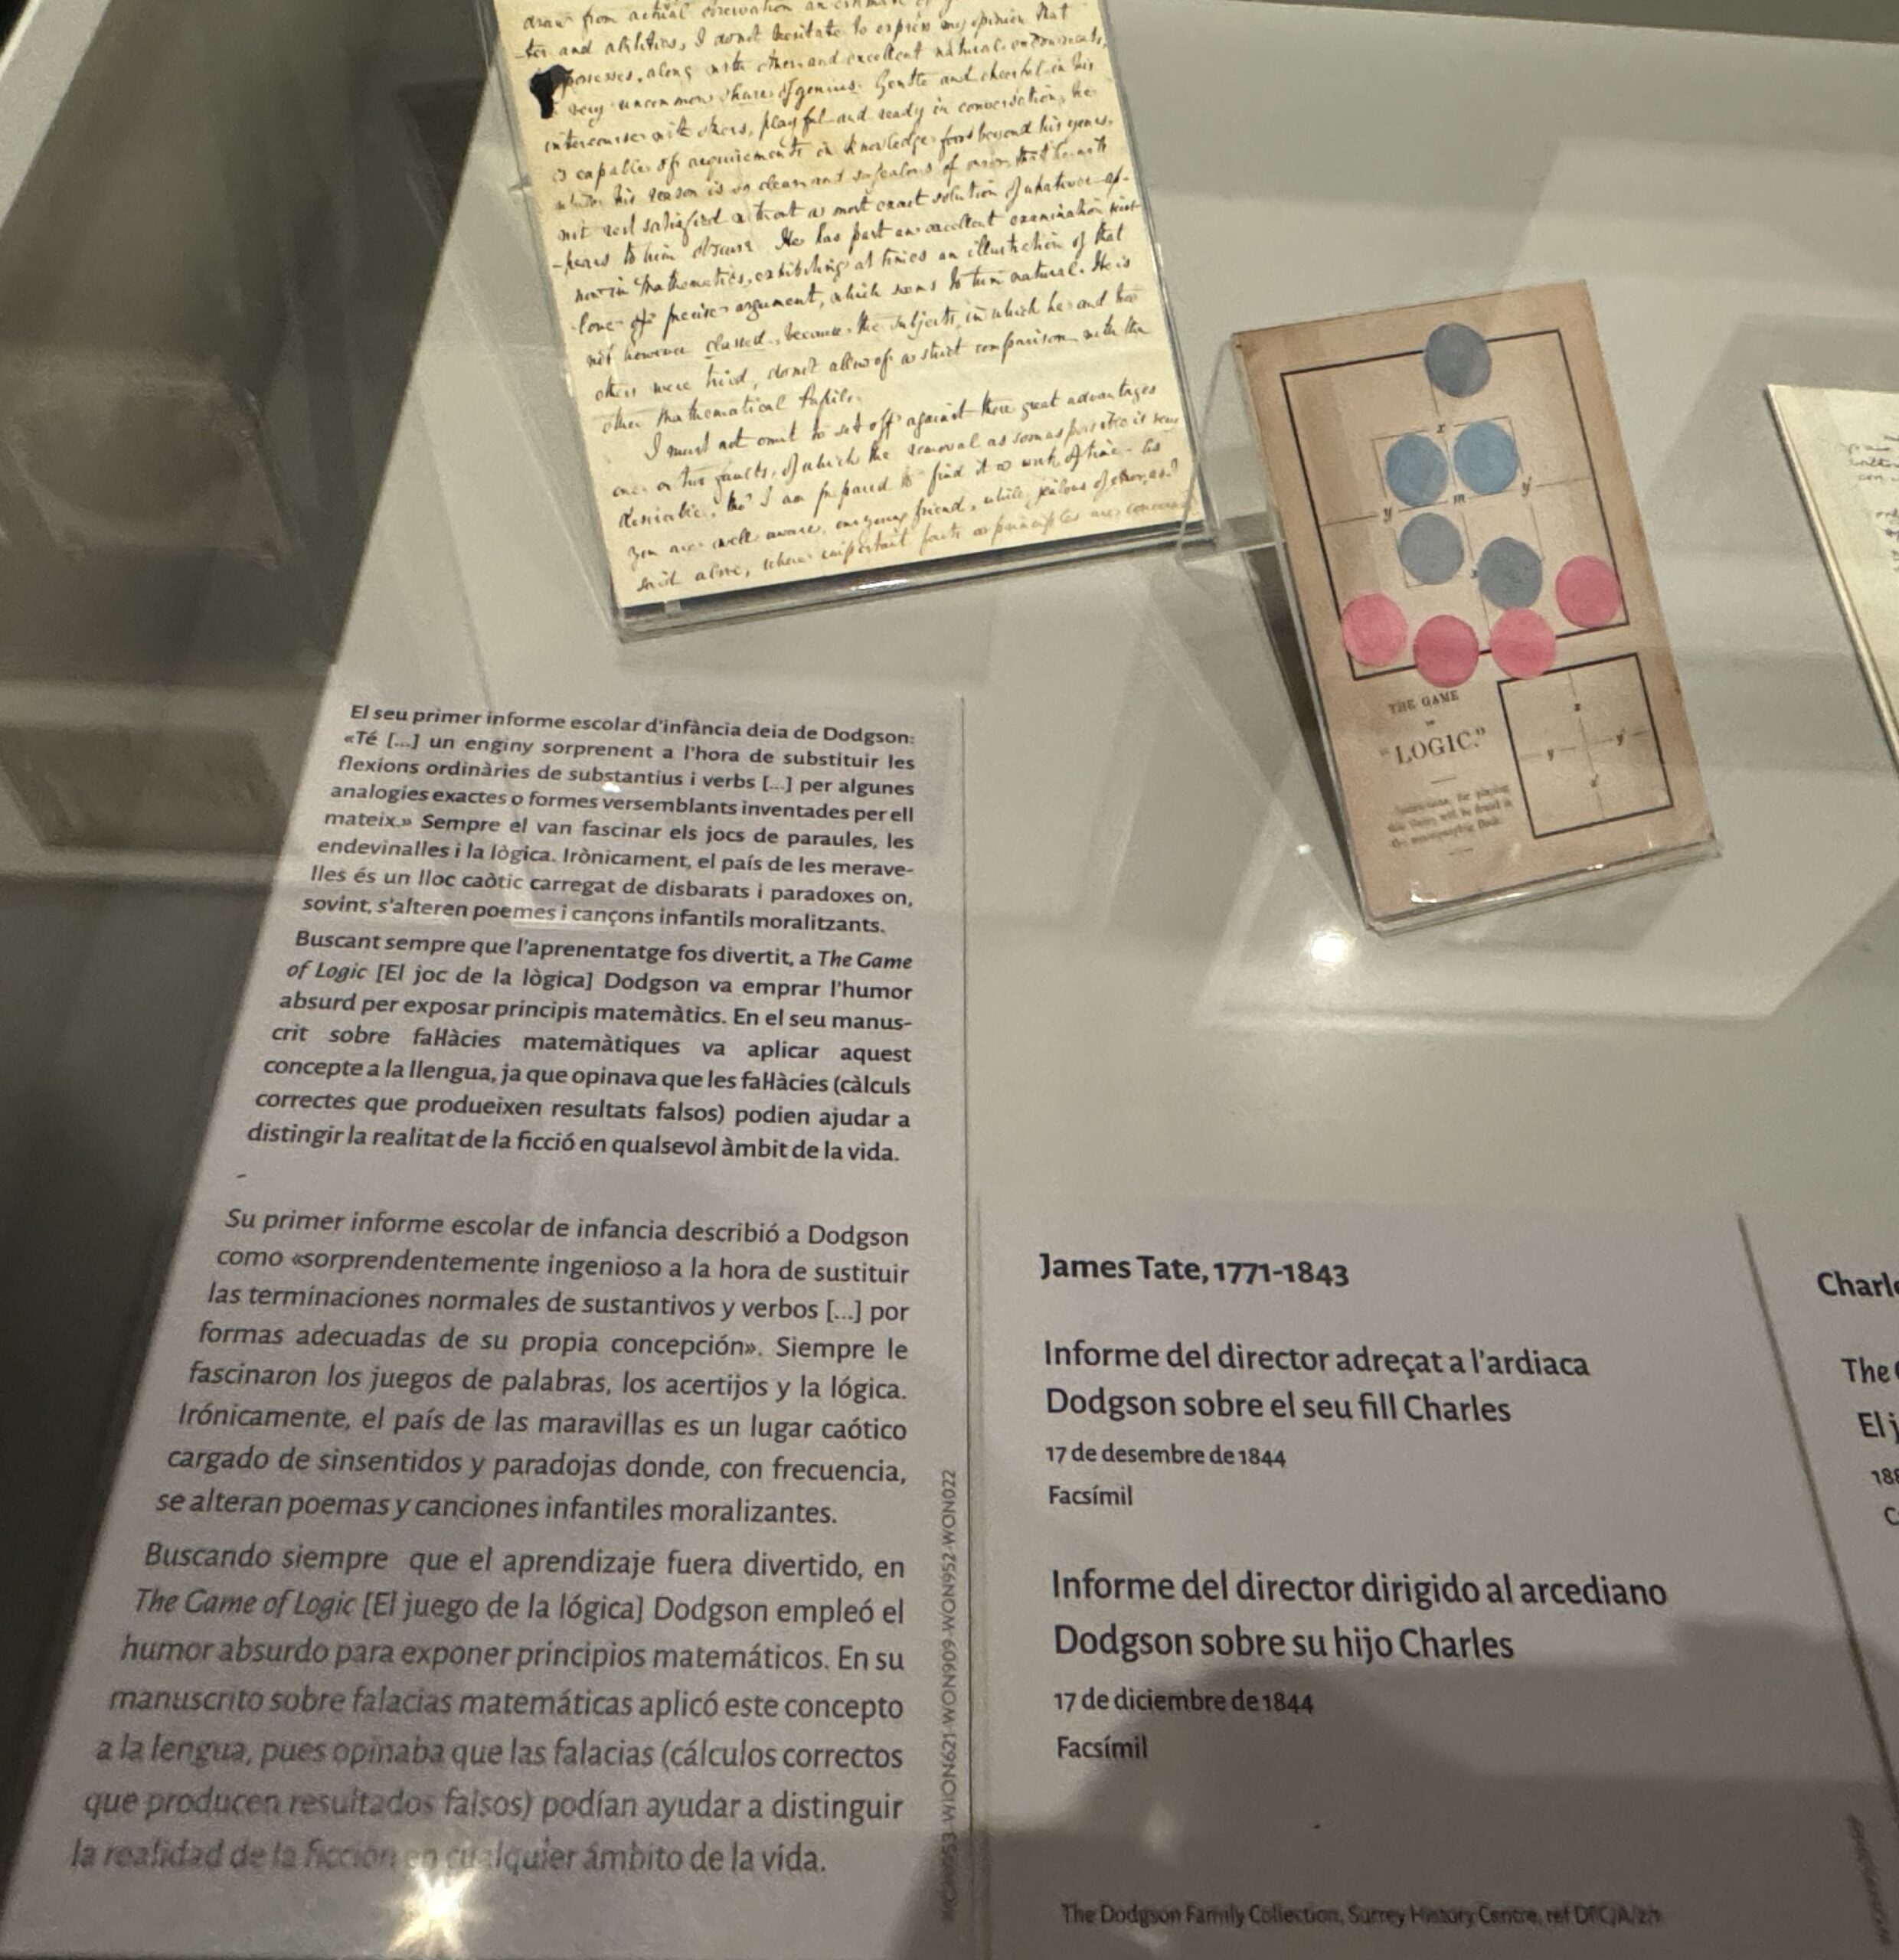 and abilities, I do not hesitate to express my opinion that
possesses, along with other and excellent natural endowments,
very uncommon share of genius. Gentle and cheerful in his
intercourse with others, playful and ready in conversation, he
is capable of acquirements in knowledge far beyond his years,
while his reason is so clear and so jealous of error, that he will
not rest satisfied without a most exact solution of whatever ap-
-pears to him obscure. He has past an excellent examination just
now in Mathematics, exhibiting at times an illustration of that
love of precise argument, which seems to him natural. He is
not however classed, because the subjects, in which he and two
others were tried, do not allow of a strict comparison with the
other Mathematical Pupils.
I must not omit to set off against these great advantages
one or two faults, of which the removal as soon as possible is very
desirable, tho' I am prepared to find it a work of time.
you are well aware, our young friend, while jealous of error, as I
said above, where important faith or principles are concerned
x
m
y
y'
THE GAME
OF
"LOGIC."
Instructions, for playing
this Game, will be found in
the accompanying Book.
x
y
y'
x'
El seu primer informe escolar d'infància deia de Dodgson:
«Té [...] un enginy sorprenent a l'hora de substituir les
flexions ordinàries de substantius i verbs [...] per algunes
analogies exactes o formes versemblants inventades per ell
mateix.» Sempre el van fascinar els jocs de paraules, les
endevinalles i la lògica. Irònicament, el país de les merave-
lles és un lloc caòtic carregat de disbarats i paradoxes on,
sovint, s'alteren poemes i cançons infantils moralitzants.
Buscant sempre que l'aprenentatge fos divertit, a The Game
of Logic [El joc de la lògica] Dodgson va emprar l'humor
absurd per exposar principis matemàtics. En el seu manus-
crit sobre fal·làcies matemàtiques va aplicar aquest
concepte a la llengua, ja que opinava que les fal·làcies (càlculs
correctes que produeixen resultats falsos) podien ajudar a
distingir la realitat de la ficció en qualsevol àmbit de la vida.
-
Su primer informe escolar de infancia describió a Dodgson
como «sorprendentemente ingenioso a la hora de sustituir
las terminaciones normales de sustantivos y verbos [...] por
formas adecuadas de su propia concepción». Siempre le
fascinaron los juegos de palabras, los acertijos y la lógica.
Irónicamente, el país de las maravillas es un lugar caótico
cargado de sinsentidos y paradojas donde, con frecuencia,
se alteran poemas y canciones infantiles moralizantes.
Buscando siempre que el aprendizaje fuera divertido, en
The Game of Logic [El juego de la lógica] Dodgson empleó el
humor absurdo para exponer principios matemáticos. En su
manuscrito sobre falacias matemáticas aplicó este concepto
a la lengua, pues opinaba que las falacias (cálculos correctos
que producen resultados falsos) podían ayudar a distinguir
la realidad de la ficción en cualquier ámbito de la vida.
WON621-WON909-WON952-WON022
James Tate, 1771-1843
Informe del director adreçat a l'ardiaca
Dodgson sobre el seu fill Charles
17 de desembre de 1844
Facsímil
Informe del director dirigido al arcediano
Dodgson sobre su hijo Charles
17 de diciembre de 1844
Facsímil
The Dodgson Family Collection, Surrey History Centre, ref
Charl
The
El j
188
C